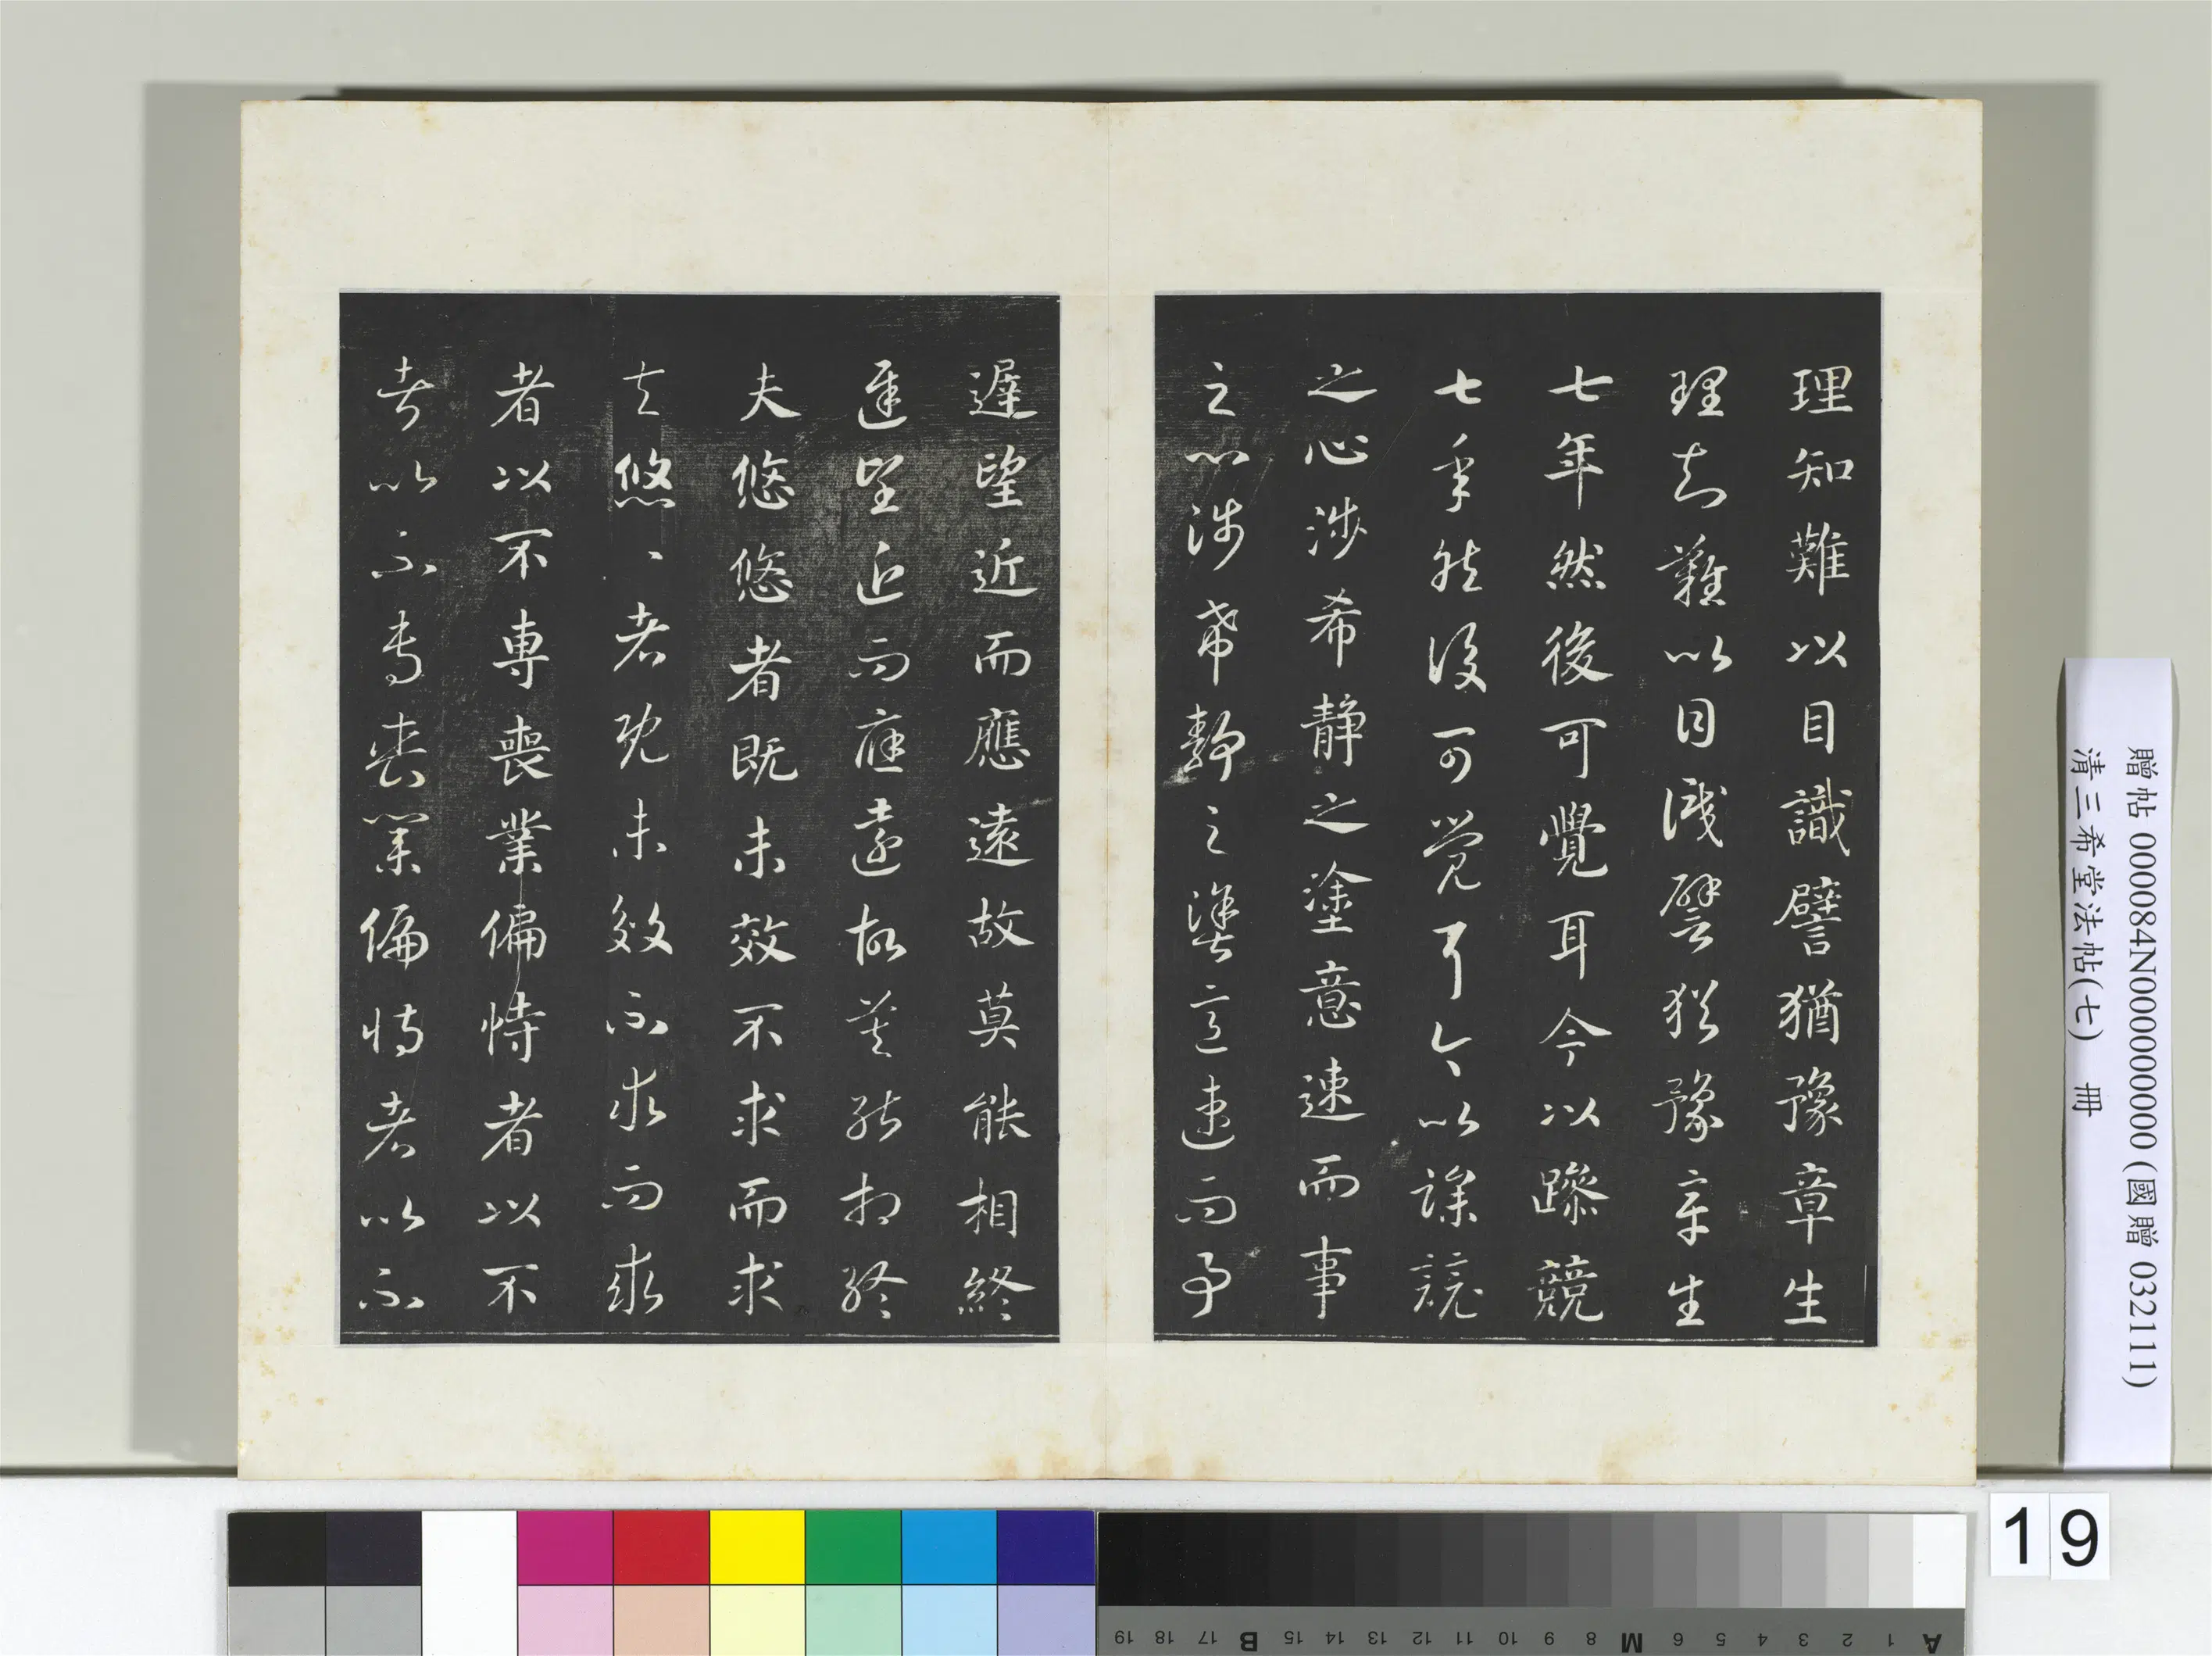 理知難以目識譬猶豫章生
理知難以目識譬猶豫章生
七年然後可覺耳今以躁競
七年然後可覺耳今以躁競
之心涉希静之塗意速而事
之心涉希静之塗意速而事
遲望近而應遠故莫能相終
遲望近而應遠故莫能相終
夫悠悠者既未效不求而求
夫悠〻者既未效不求而求
者以不專喪業偏恃者以不
者以不專喪業偏恃者以不
贈帖 000084N000000000 (國贈 032111)
清三希堂法帖(七) 冊
19
A 1 2 3 4 5 6 M 8 9 10 11 12 13 14 15 B 17 18 19